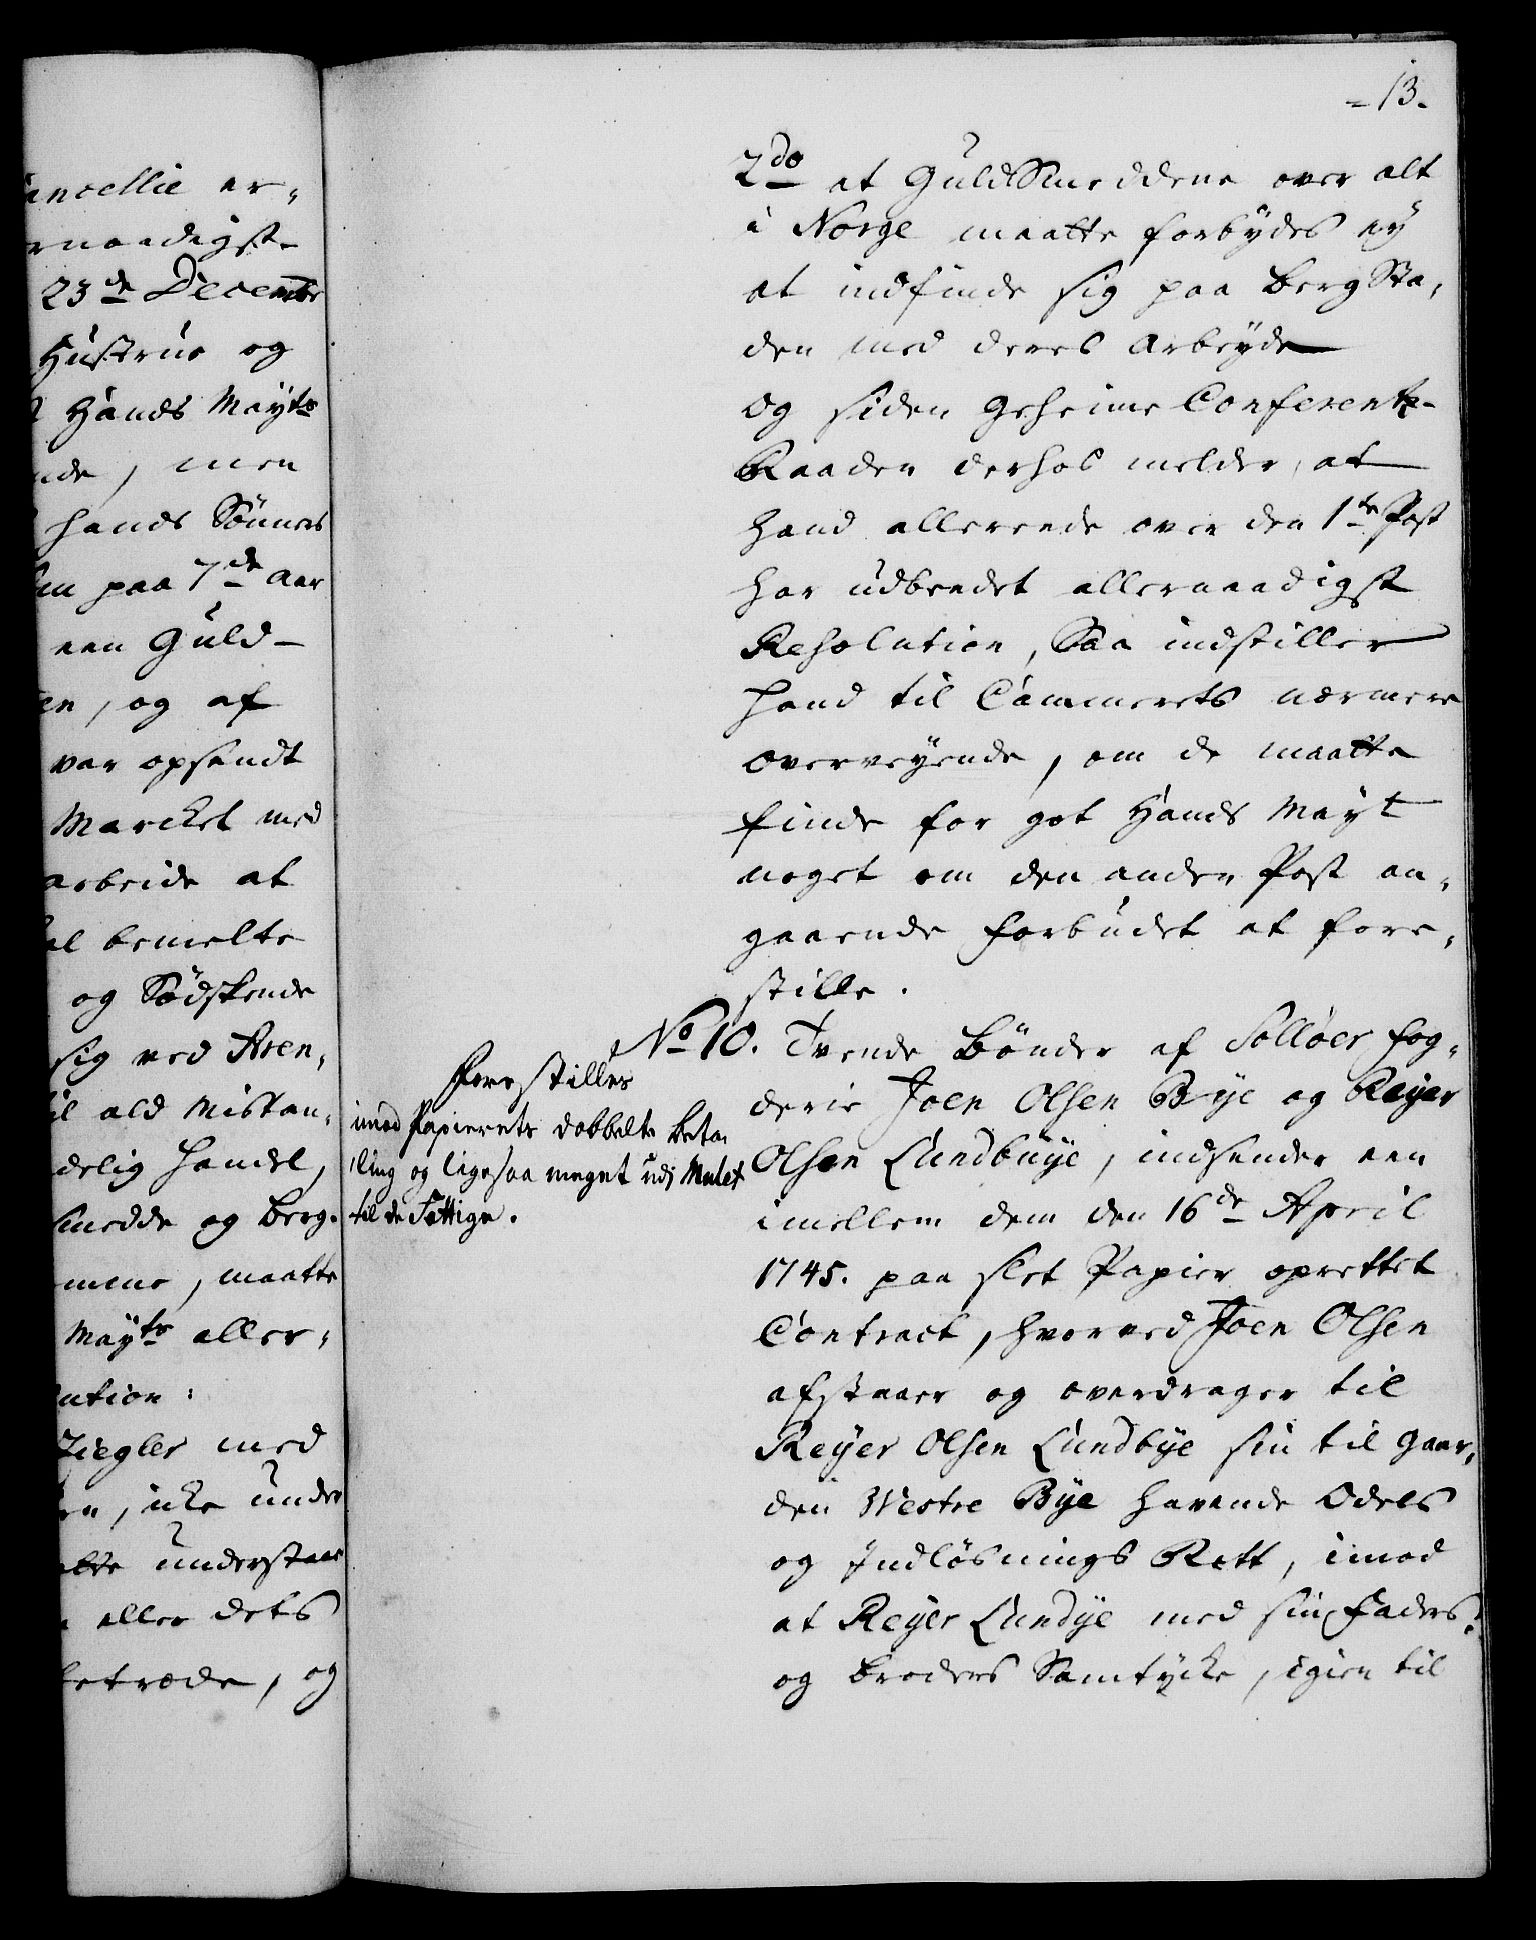 ancellie er-
rnaadigst
23de Decembr
Hustrue og
Hands Mayts
nde, men
hands Sönners
paa 7de Aar
een Guld-
en, og af
var opsendt
Marcket med
arbeide at
al bemelte
og Södskende
sig ved Aren,
il ald Mistan,
delig handel,
smedde og Berg-
mene, maatte
Mayts aller,
ution:
Ziegler med
en, icke under
understaae
eller dets
betræde, og
- 13.
2do at GuldSmeddene over alt
i Norge maatte forbydes ey
at indfinde sig paa BergSta,
den med deres Arbeyde
og siden Geheime Conferentz-
Raaden derhos melder, at
hand allereede over den 1te Post
har udbeedet allernaadigst
Resolution, Saa indstiller
hand til Cammerets nærmere
overveyende, om de maatte
finde for got Hands Mayt
noget om den anden Post an,
gaaende forbudet at fore,
stille.
No 10. Tvende Bönder af Solløer fog,
derie Joen Olsen Bye og Reyer
Olsen Lundbuye, indsender een
imellem dem den 16de April
1745. paa slet Papier oprettet
Contract, hvorved Joen Olsen
afstaaer og overdrager til
Reyer Olsen Lundbye sin til Gaar,
den Westre Bye havende Odels
og Indløsnings Rett, imod
at Reyer Lundye med sin Faders
og Broders Samtycke, igien til
Forestilles
imod Papierets dobbelte beta,
ling og ligesaa meget udj Mulct
til de Fattige.